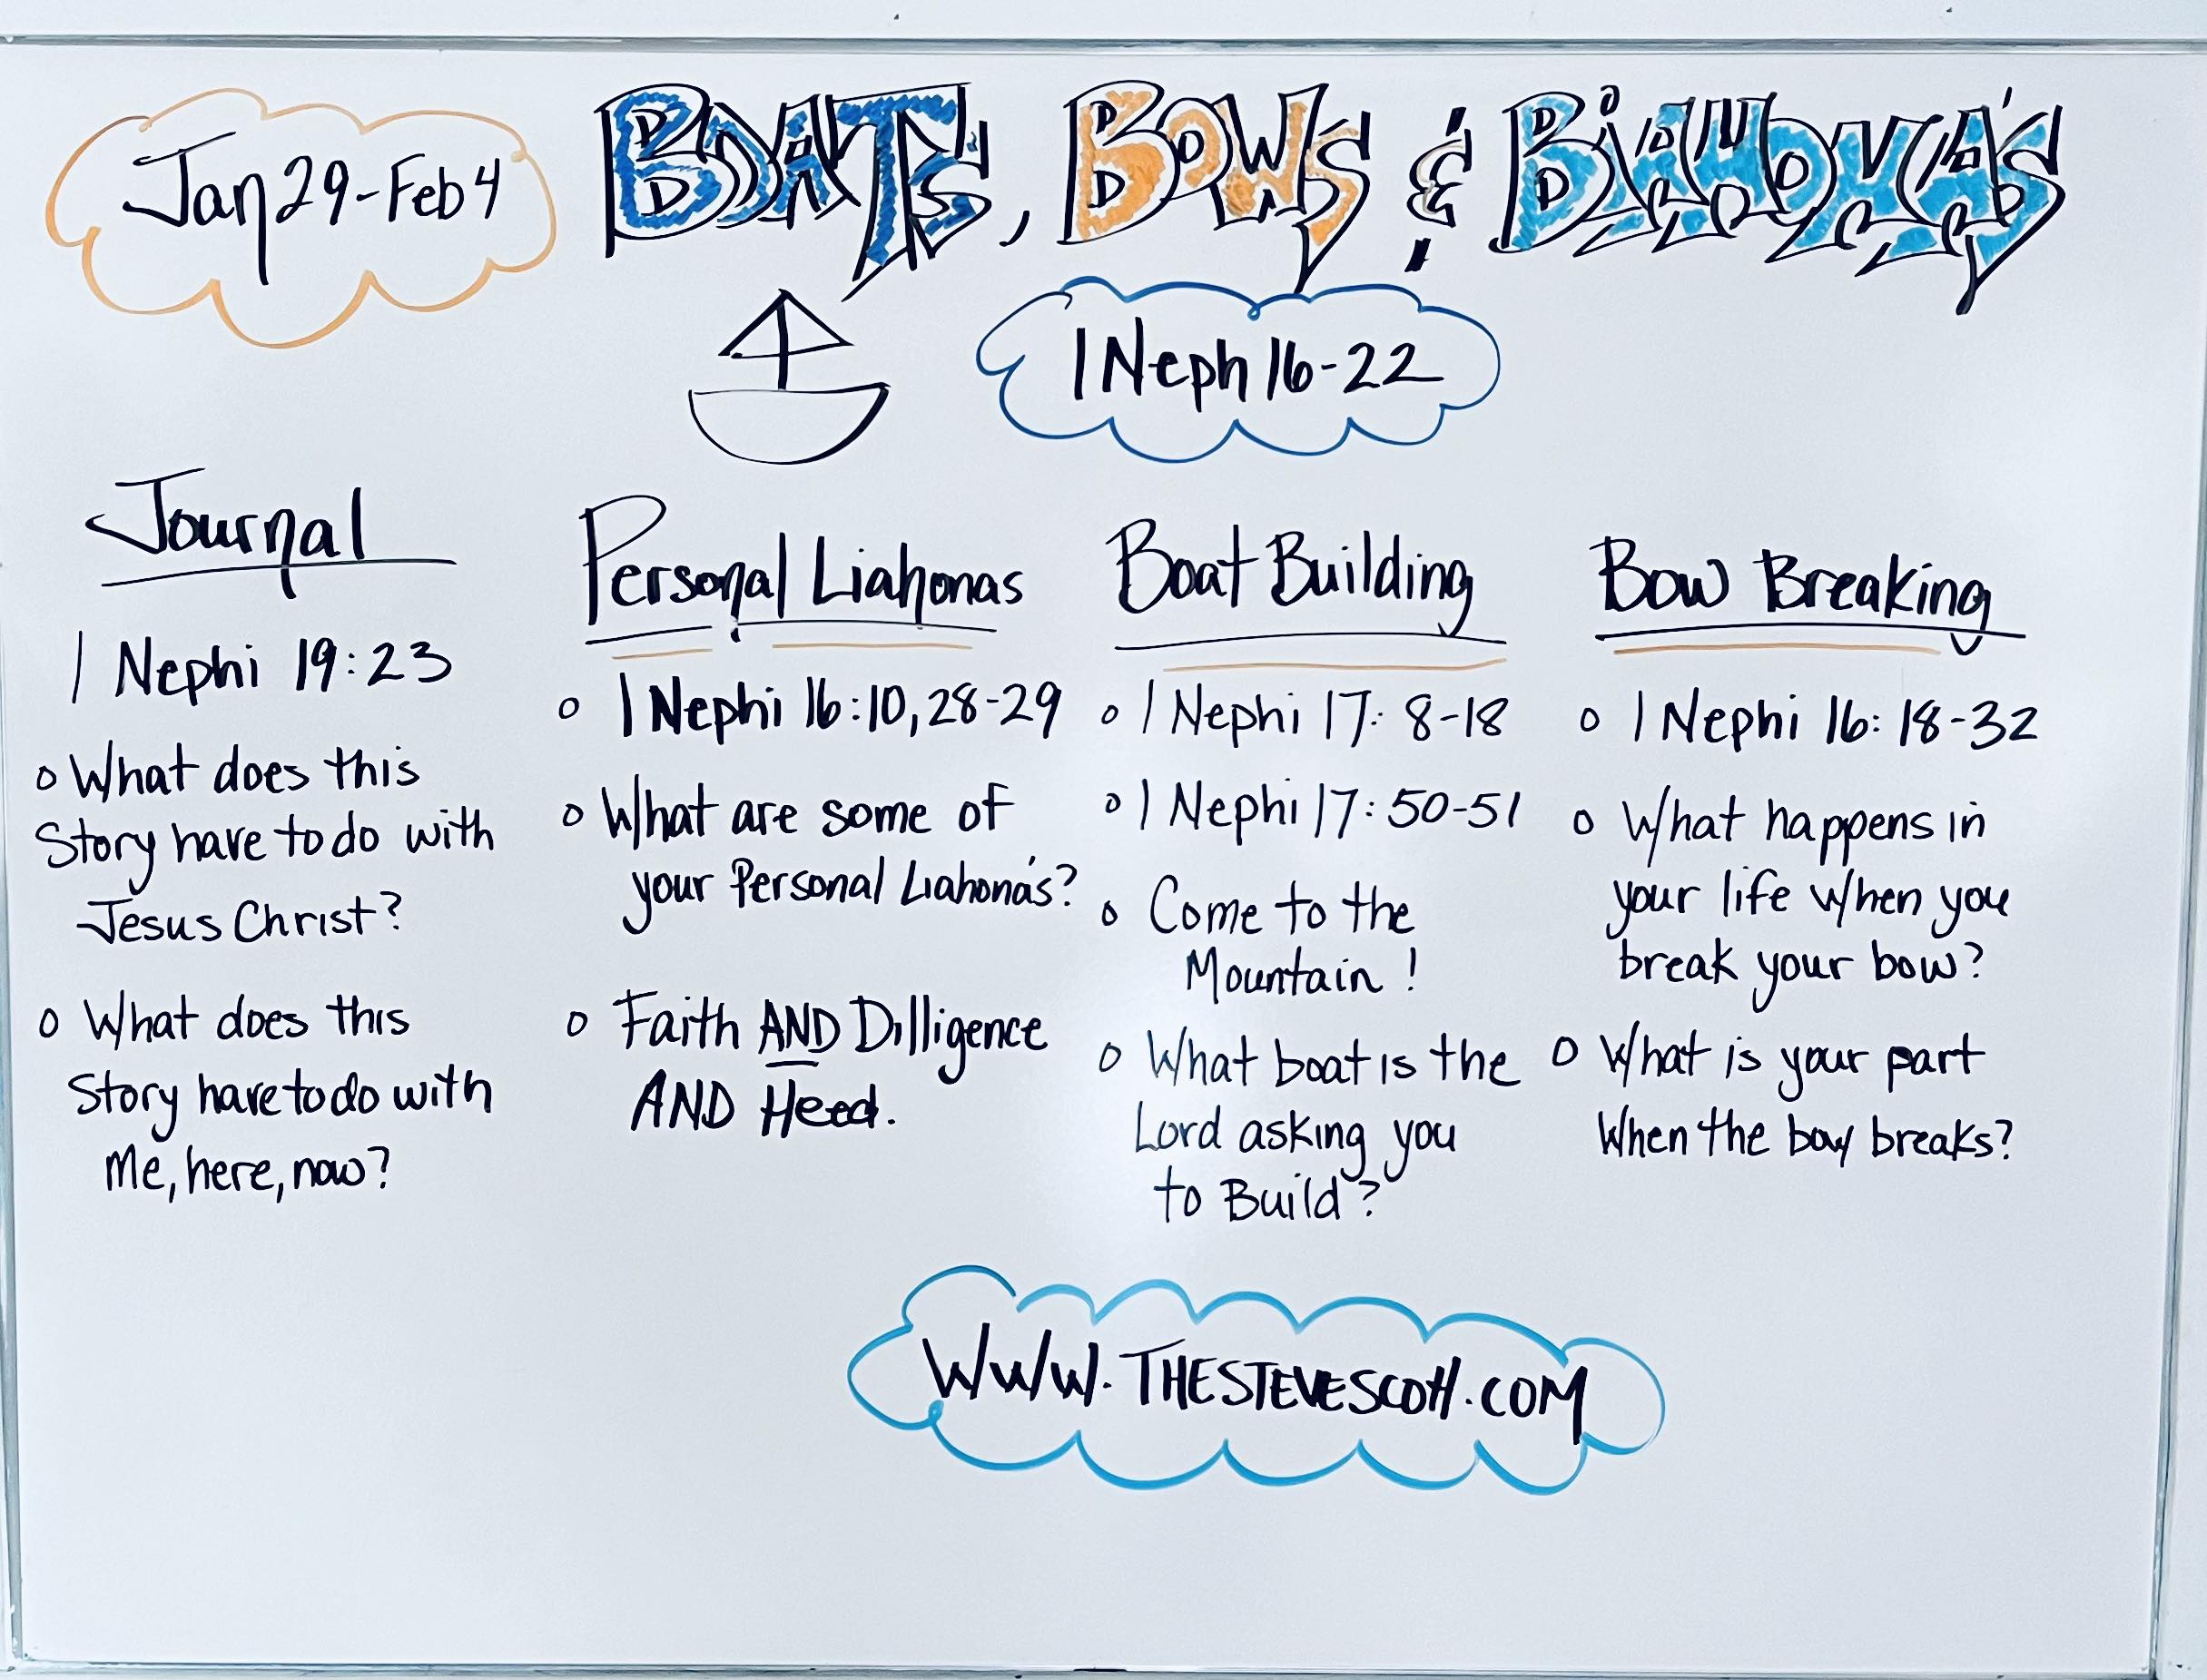 Jan 29-Feb 4
BOATS, BOWS & BIAHONA'S
1 Neph 16-22
Journal
1 Nephi 19:23
o What does this
Story have to do with
Jesus Christ?
o What does this
Story have to do with
Me, here, now?
Personal Liahonas
o 1 Nephi 16:10, 28-29
o What are some of
your Personal Liahona's?
o Faith AND Dilligence
AND Heed.
Boat Building
o 1 Nephi 17: 8-18
o 1 Nephi 17: 50-51
o Come to the
Mountain!
o What boat is the
Lord asking you
to Build?
Bow Breaking
o 1 Nephi 16: 18-32
o What happens in
your life when you
break your bow?
o What is your part
When the bow breaks?
WWW.THESTEVESCOTT.COM